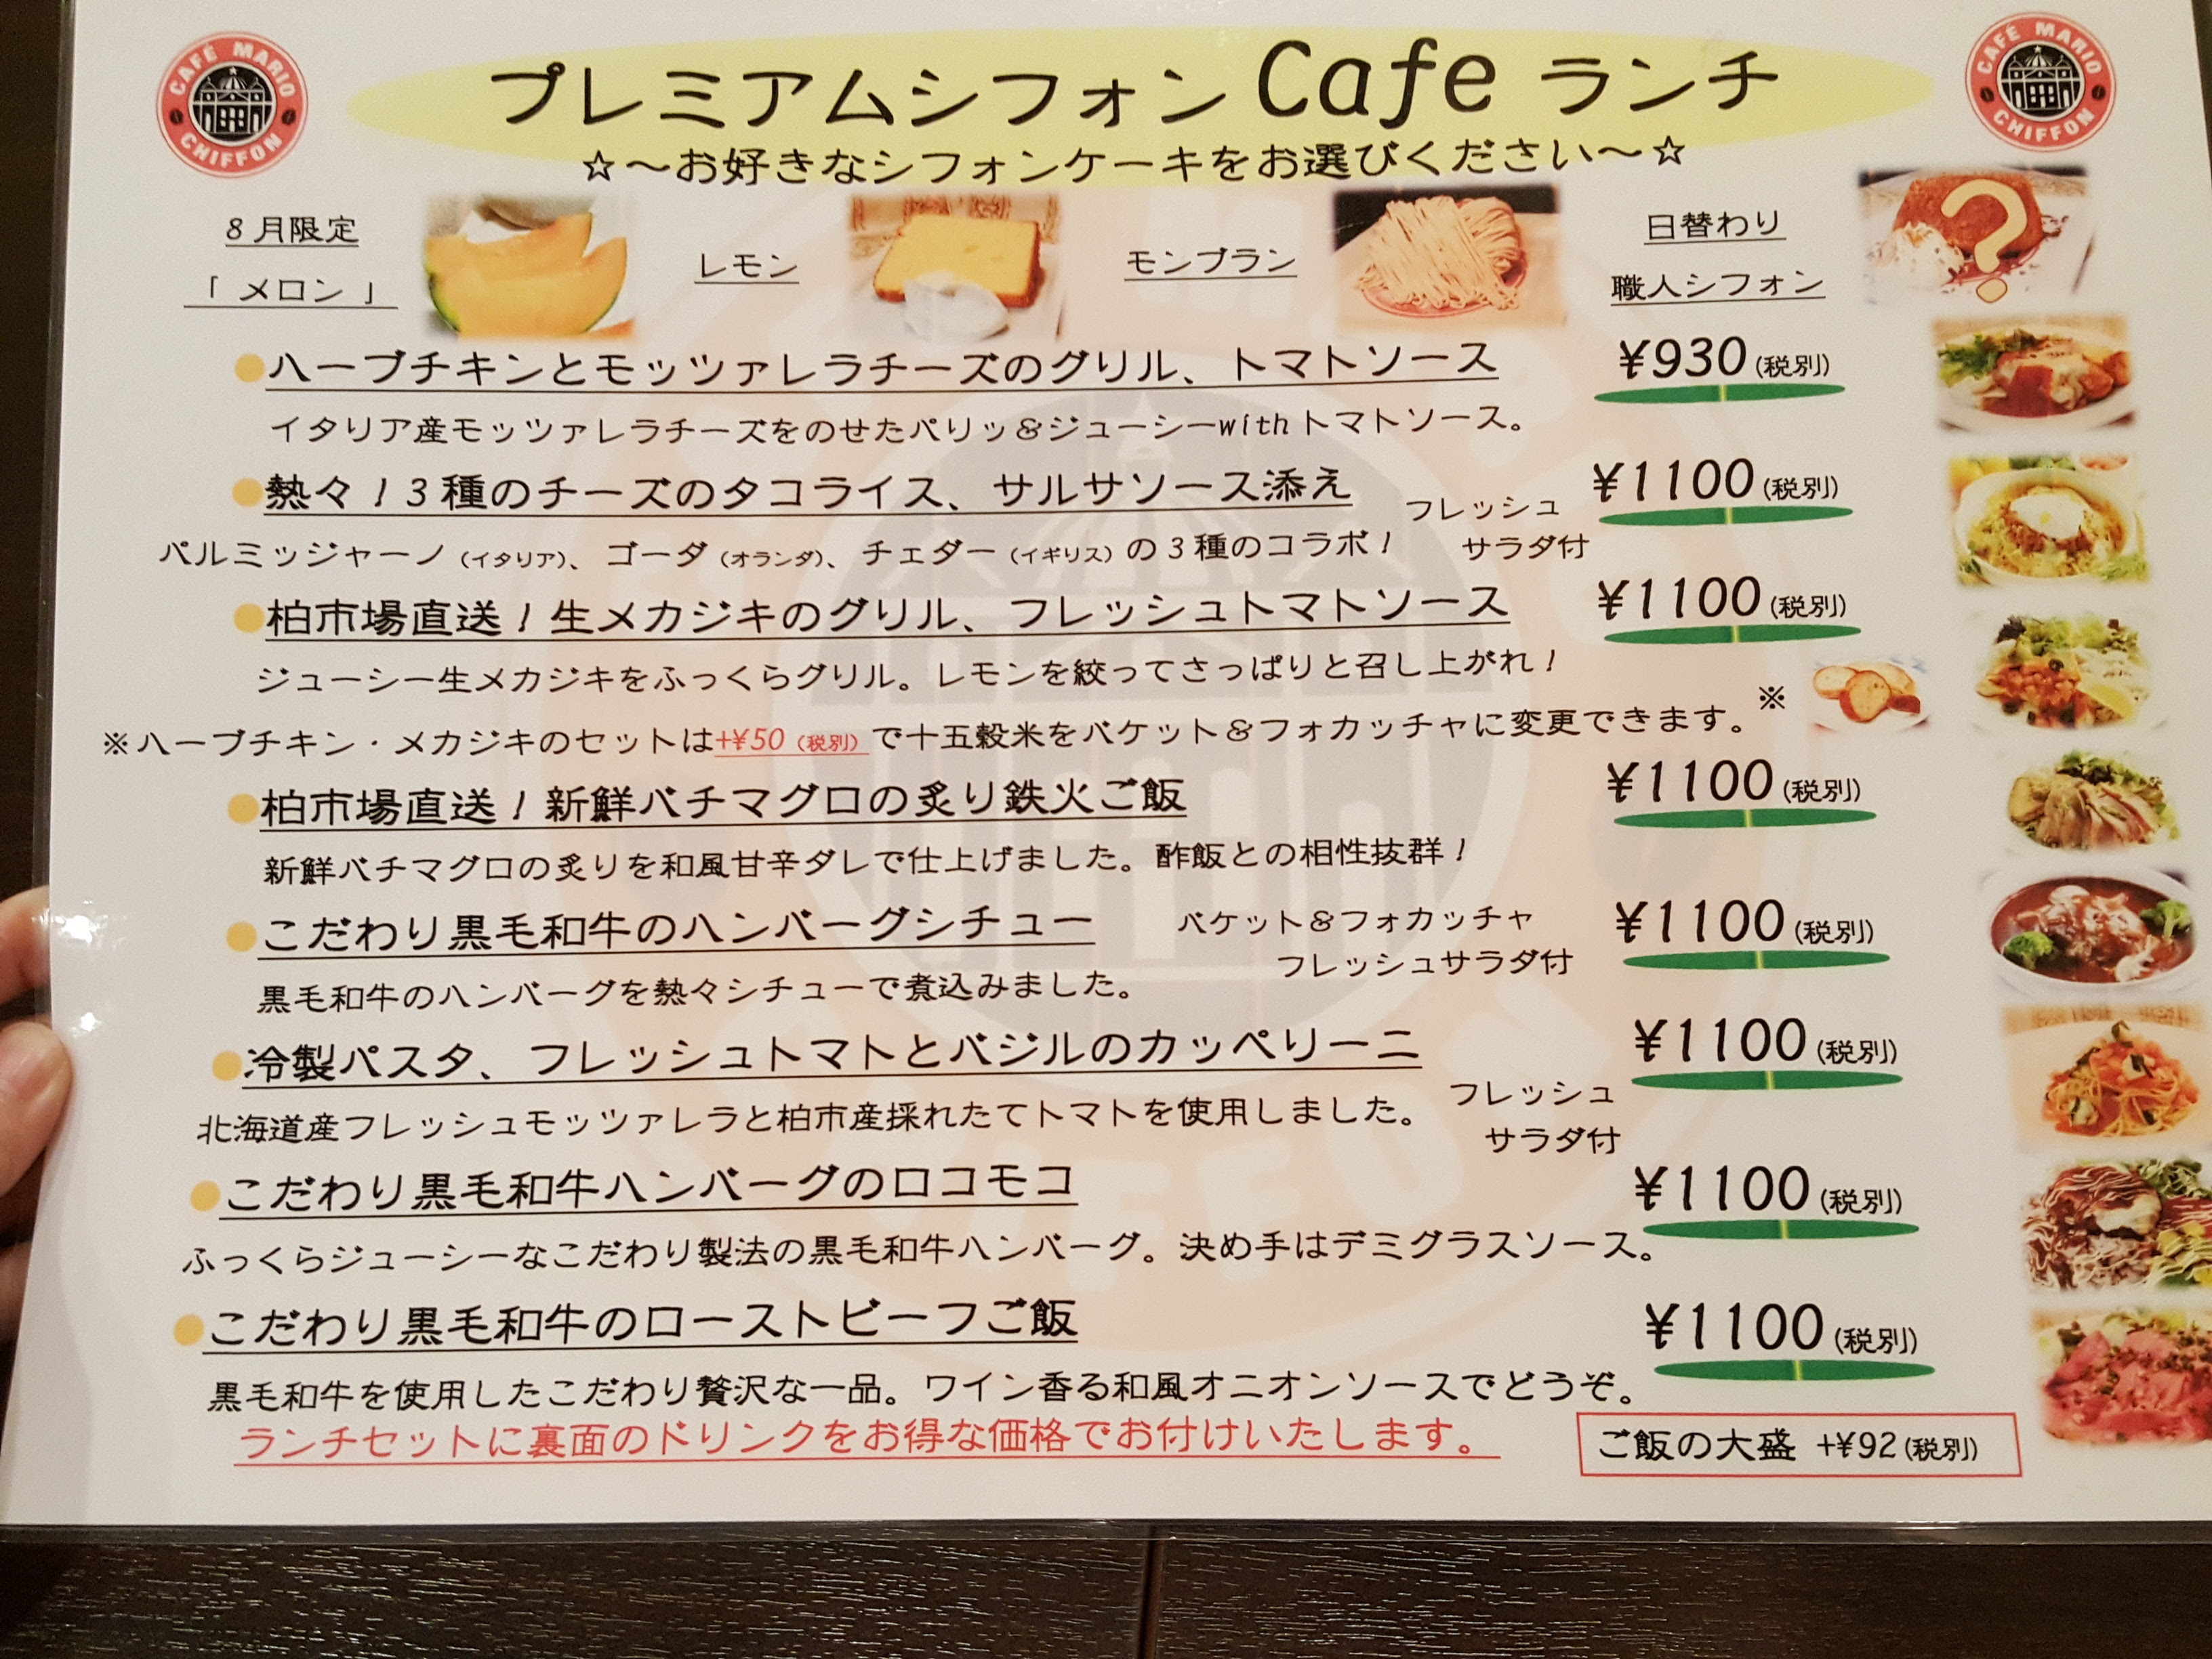 CAFÉ MARIO CHIFFON
プレミアムシフォン Cafe ランチ
CAFÉ MARIO CHIFFON
☆～お好きなシフォンケーキをお選びください～☆
8月限定
「メロン」
レモン
モンブラン
日替わり
職人シフォン
?
●ハーブチキンとモッツァレラチーズのグリル、トマトソース ¥930(税別)
イタリア産モッツァレラチーズをのせたパリッ&ジューシーwithトマトソース。
●熱々!3種のチーズのタコライス、サルサソース添え ¥1100(税別)
フレッシュ
サラダ付
パルミッジャーノ(イタリア)、ゴーダ(オランダ)、チェダー(イギリス)の3種のコラボ!
●柏市場直送!生メカジキのグリル、フレッシュトマトソース ¥1100(税別)
ジューシー生メカジキをふっくらグリル。レモンを絞ってさっぱりと召し上がれ!
※ハーブチキン・メカジキのセットは+¥50(税別)で十五穀米をバケット&フォカッチャに変更できます。※
●柏市場直送!新鮮バチマグロの炙り鉄火ご飯 ¥1100(税別)
新鮮バチマグロの炙りを和風甘辛ダレで仕上げました。酢飯との相性抜群!
●こだわり黒毛和牛のハンバーグシチュー ¥1100(税別)
バケット&フォカッチャ
フレッシュサラダ付
黒毛和牛のハンバーグを熱々シチューで煮込みました。
●冷製パスタ、フレッシュトマトとバジルのカッペリーニ ¥1100(税別)
フレッシュ
サラダ付
北海道産フレッシュモッツァレラと柏市産採れたてトマトを使用しました。
●こだわり黒毛和牛ハンバーグのロコモコ ¥1100(税別)
ふっくらジューシーなこだわり製法の黒毛和牛ハンバーグ。決め手はデミグラスソース。
●こだわり黒毛和牛のローストビーフご飯 ¥1100(税別)
黒毛和牛を使用したこだわり贅沢な一品。ワイン香る和風オニオンソースでどうぞ。
ランチセットに裏面のドリンクをお得な価格でお付けいたします。
ご飯の大盛 +¥92(税別)